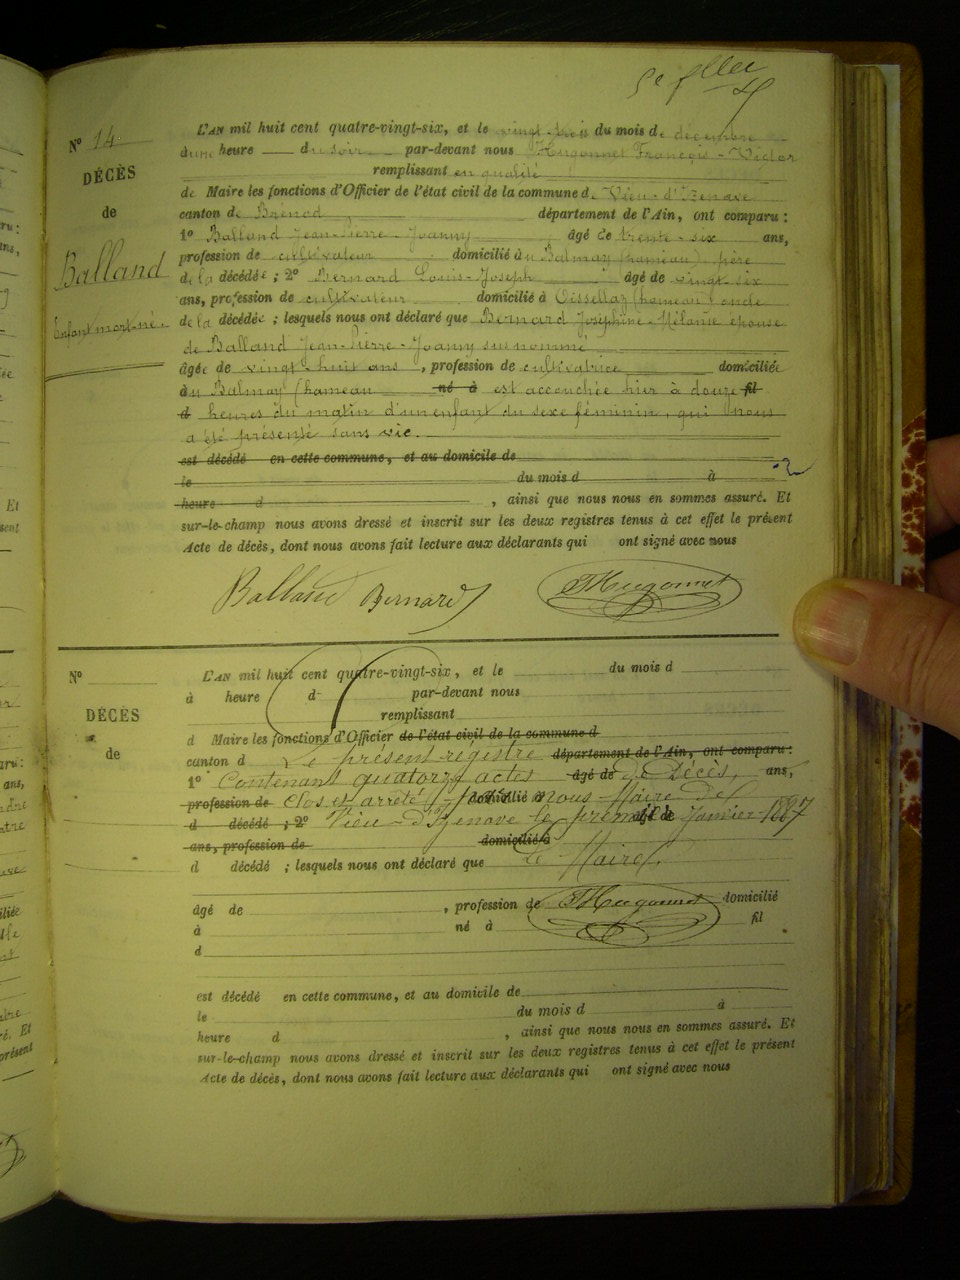 Nº 14
DÉCÈS
de
Balland
Enfant mort-né.
L'AN mil huit cent quatre-vingt-six, et le vingt-trois du mois de décembre
d'une heure du soir par-devant nous Hugonnet François-Victor
remplissant en qualité
de Maire les fonctions d'Officier de l'état civil de la commune de Vieu-d'Izenave
canton de Brénod département de l'Ain, ont comparu :
1º Balland Jean-Pierre-Joanny âgé de trente-six ans,
profession de cultivateur domicilié au Balmay (hameau) père
de la décédée ; 2º Bernard Louis-Joseph âgé de vingt-six
ans, profession de cultivateur domicilié à Oissellaz (hameau) oncle
de la décédée ; lesquels nous ont déclaré que Bernard Joséphine-Mélanie épouse
de Balland Jean-Pierre-Joanny susnommé
âgée de vingt-huit ans, profession de cultivatrice domiciliée
au Balmay (hameau né à est accouchée hier à douze fil
d heures du matin d'un enfant du sexe féminin, qui nous
a été présenté sans vie.
est décédé en cette commune, et au domicile de
le du mois d à
heure d , ainsi que nous nous en sommes assuré. Et
sur-le-champ nous avons dressé et inscrit sur les deux registres tenus à cet effet le présent
Acte de décès, dont nous avons fait lecture aux déclarants qui ont signé avec nous
Balland Bernard FHugonnet
Nº
DÉCÈS
de
L'AN mil huit cent quatre-vingt-six, et le du mois d
à heure d par-devant nous
remplissant
d Maire les fonctions d'Officier de l'état civil de la commune d
canton d Le présent régistre département de l'Ain, ont comparu :
1º Contenant quatorze actes âgé de de Décès, ans,
profession de Clos et arrêté domicilié à par nous Maire de
d décédé ; 2º Vieu-d'Izenave le premier âgé de Janvier 1887
ans, profession de domicilié à
d décédé ; lesquels nous ont déclaré que Le Maire.
âgé de , profession de FHugonnet domicilié
à né à fil
d
est décédé en cette commune, et au domicile de
le du mois d à
heure d , ainsi que nous nous en sommes assuré. Et
sur-le-champ nous avons dressé et inscrit sur les deux registres tenus à cet effet le présent
Acte de décès, dont nous avons fait lecture aux déclarants qui ont signé avec nous